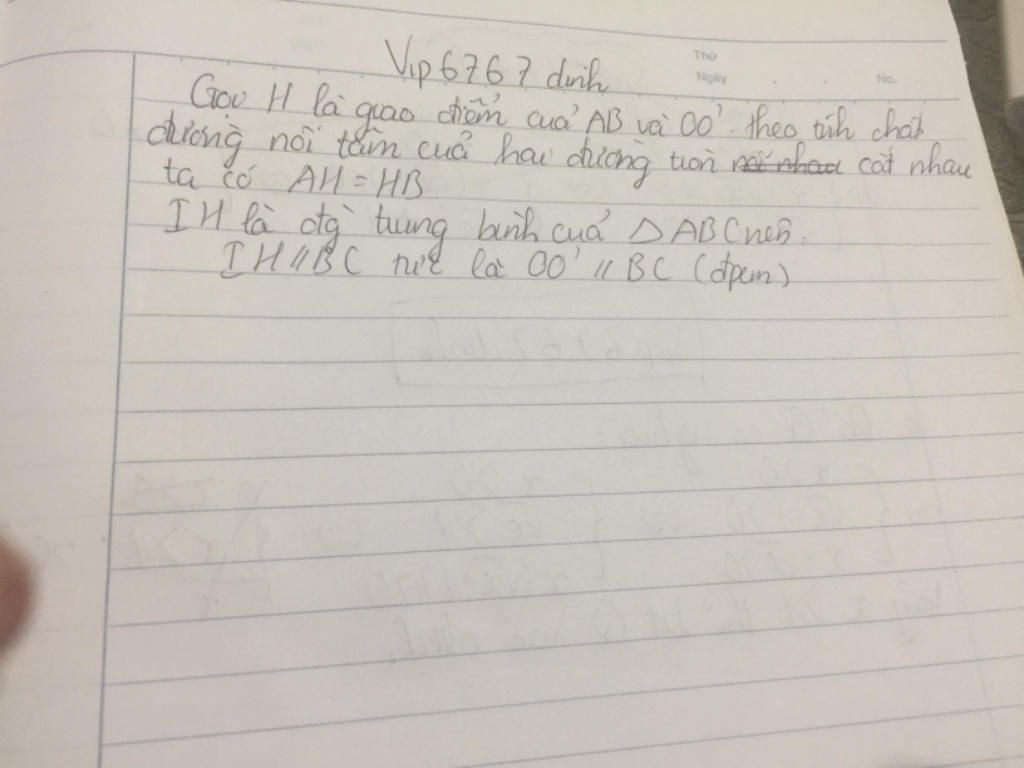 Vip6767dinh
Thứ
Ngày . . No.
Gọi H là giao điểm của AB và OO'. theo tính chất
đường nối tâm của hai đường tròn nối nhau cắt nhau
ta có AH = HB
IH là đg trung bình của △ABC nên.
IH // BC tức là OO' // BC (đpcm)